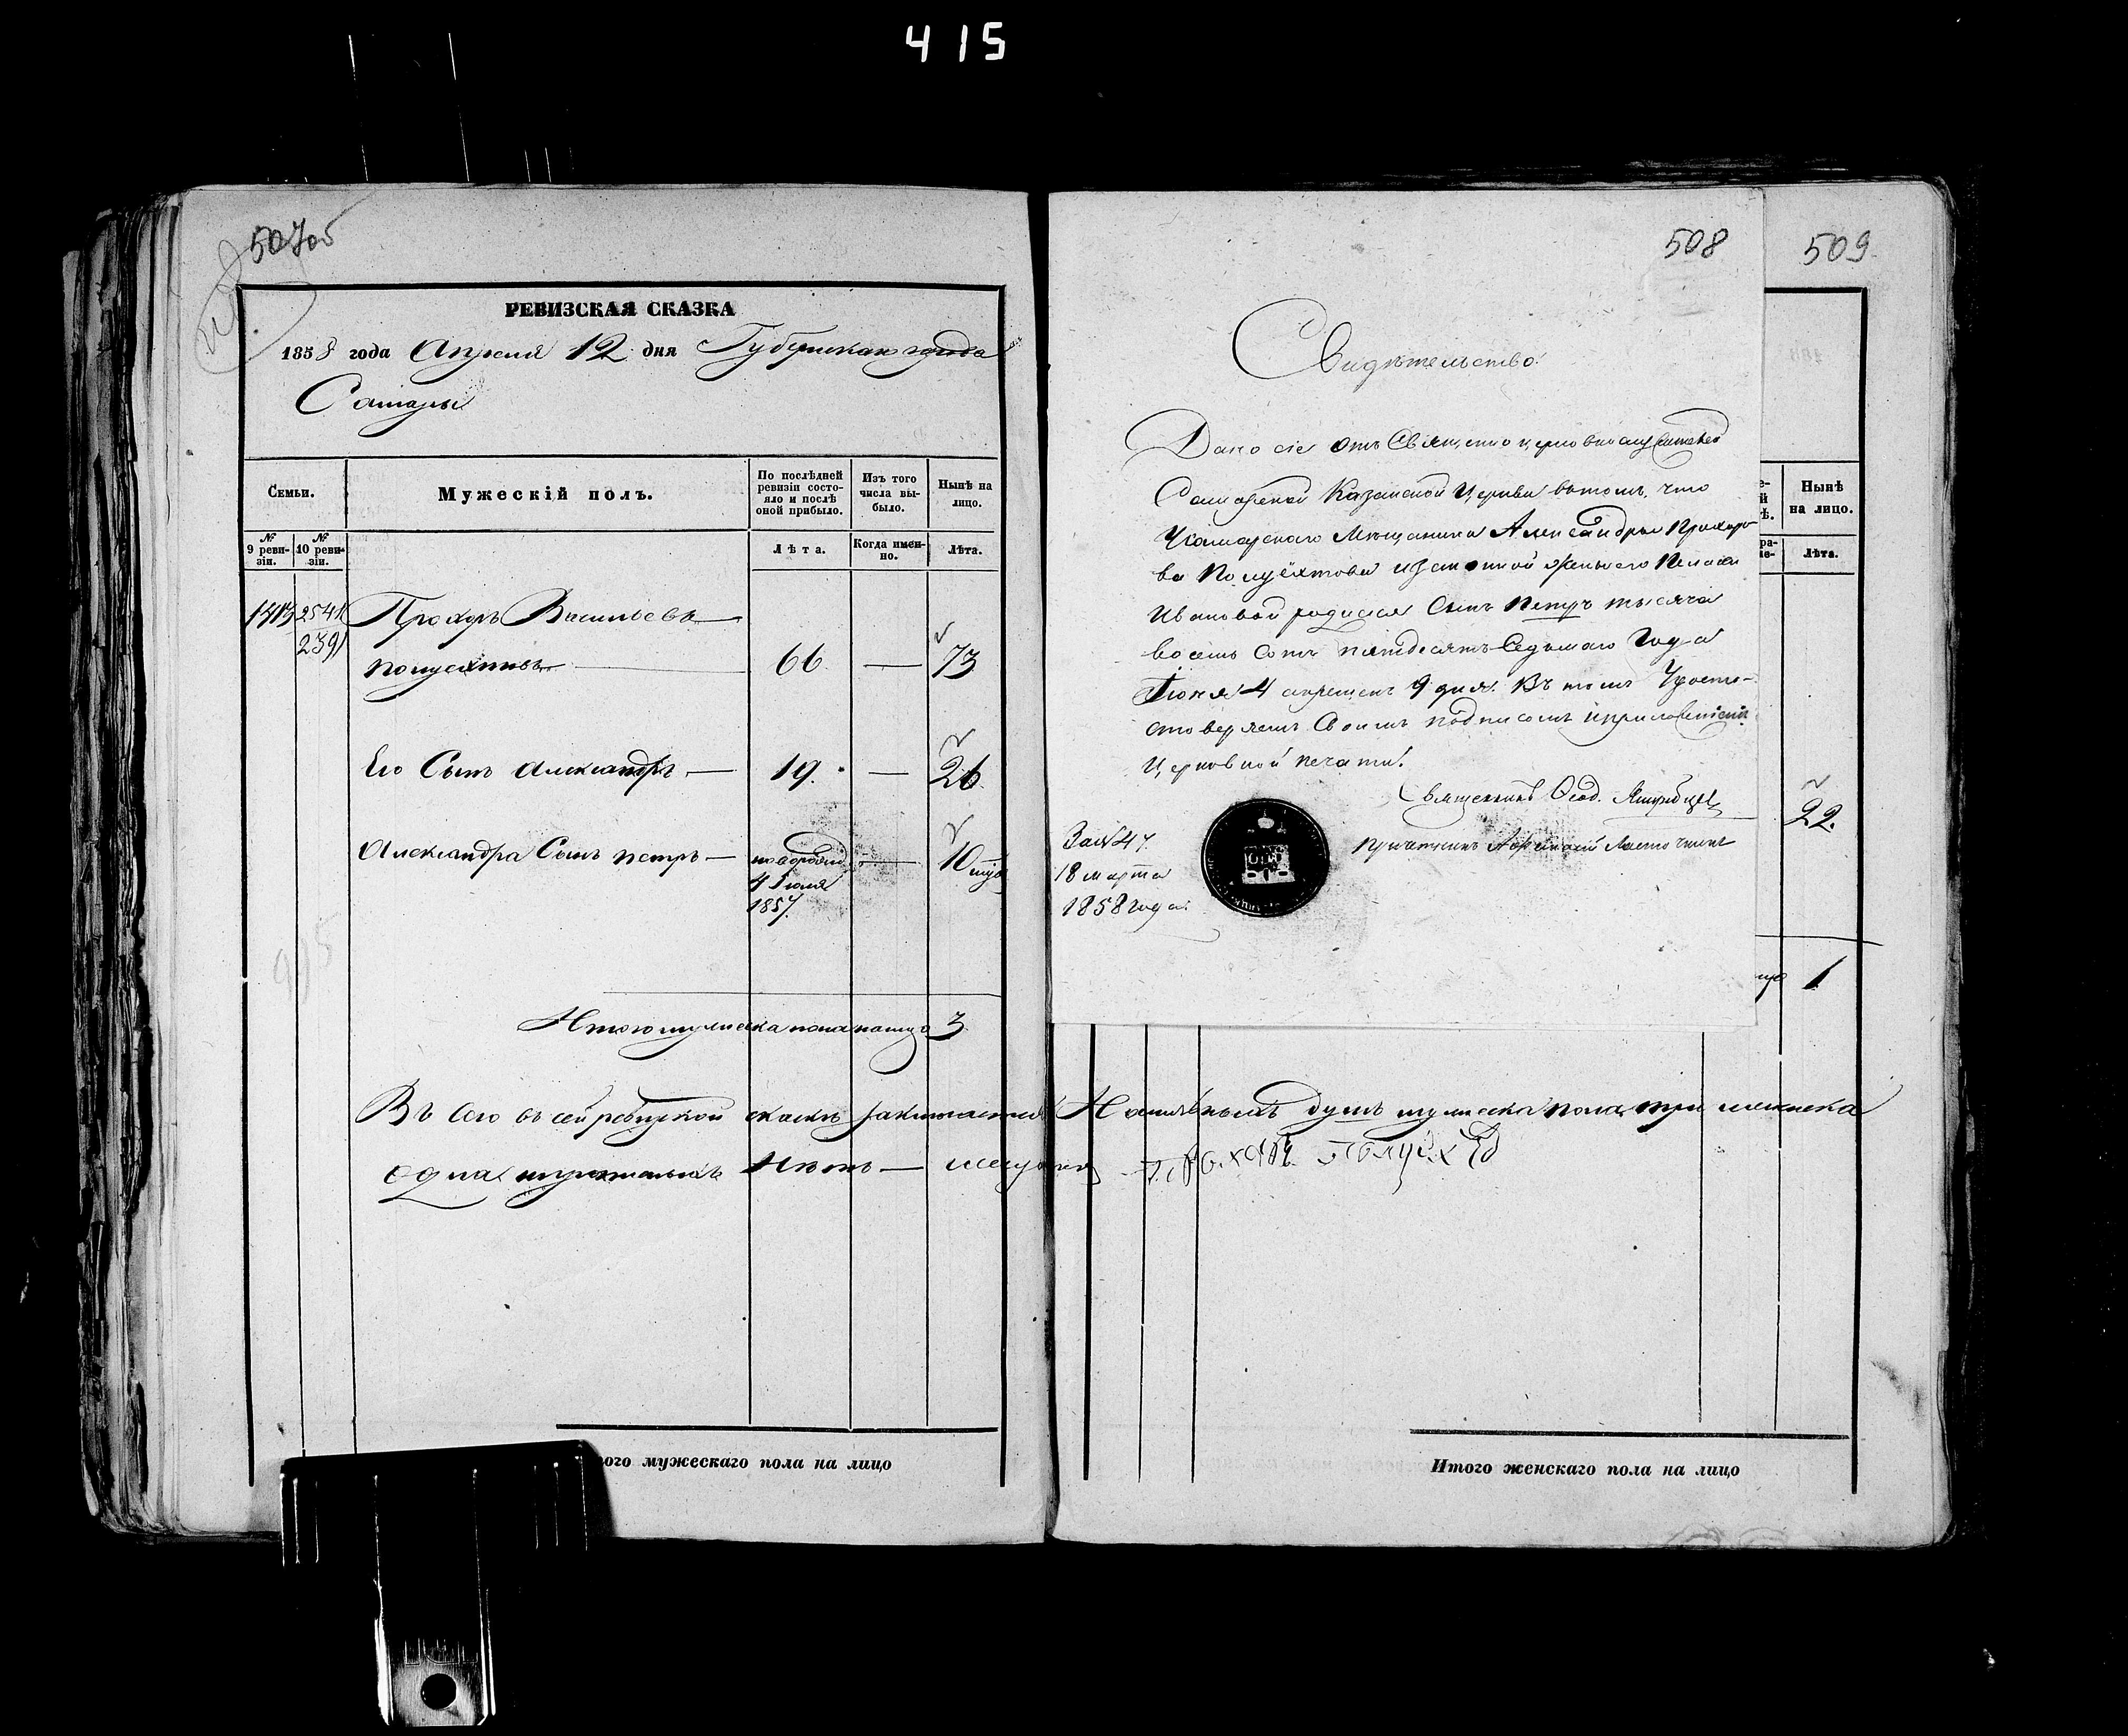 415
507об
РЕВИЗСКАЯ СКАЗКА
1858 года Апреля 12 дня Губернскаго города
Самары
Семьи.
Мужескій полъ.
По послѣдней ревизіи состояло и послѣ оной прибыло.
Изъ того числа выбыло.
Нынѣ на лицо.
№ 9 ревизіи.
№ 10 ревизіи.
Лѣта.
Когда именно.
Лѣта.
1413 2541 Прохоръ Васильевъ
2391
Полуехтовъ 66 73
Его Сынъ Александръ 19. 26
Александра Сынъ Петръ новорожд 10
4 Іюня
1857.
Итого мужеска пола налицо 3
Въ сей ревизкой скаскѣ заключается Наличныхъ душъ мужеска пола три женска
одна Нѣтъ
Прохоръ Полуех
ого мужескаго пола на лицо
508
Свидѣтельство.
Дано сіе отъ Священно церковнослужителей
Самарской Казанской Церкви вътомъ, что
Александра Прохоро
ва Полуёхтова жены его
Ивановой родился Сынъ Петръ тысяча
восемь Сотъ пятдесятъ Седьмаго Года
Іюня 4 а крещенъ 9 дня. Въ томъ Удосто-
стоверяемъ Своимъ подписомъ
Церковной печати.
Священникъ Ѳеод.
За № 47.
18 марта
1858 года.
509
Нынѣ на лицо.
Лѣта.
22.
1
Итого женскаго пола на лицо